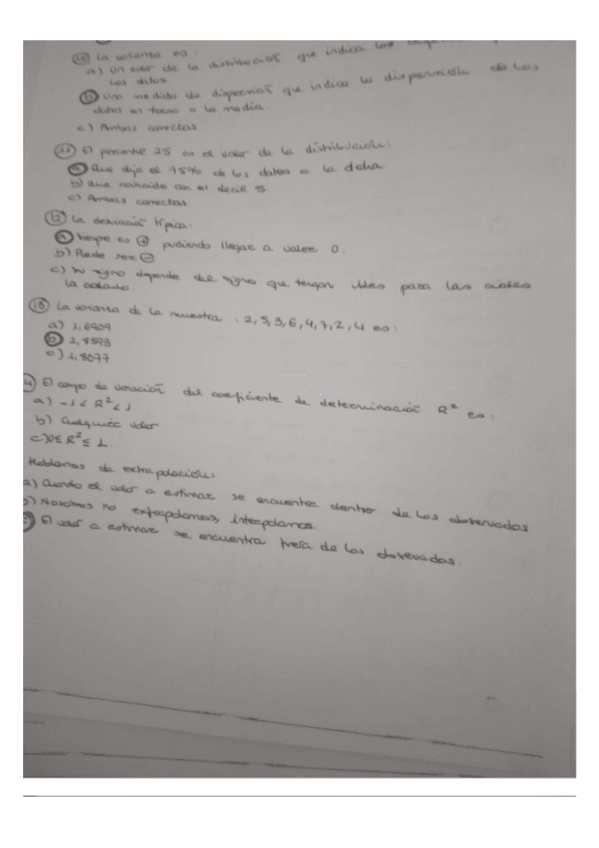 10) La varianza es:
a) Un valor de la distribución que indica las
los datos.
b) Una medida de dispersión que indica la dispersión de los
datos en torno a la media.
c) Ambas correctas.
11) El percentil 25 es el valor de la distribución:
a) Que deja el 75% de los datos a la dcha.
b) Que coincide con el decil 5
c) Ambas correctas
12) La desviación típica:
a) Siempre es + pudiendo llegar a valer 0.
b) Puede ser -
c) Su signo depende del signo que tengan para las cuales
la
13) La varianza de la muestra: 2,5,3,6,4,7,2,4 es:
a) 1,6909
b) 2,8593
c) 1,8077
El campo de variación del coeficiente de determinación R² es:
a) -1 < R² < 1
b) Cualquier valor
c) 0 ≤ R² ≤ 1.
Hablamos de extrapolación:
a) Cuando el valor a estimar se encuentra dentro de los observados
b) Nosotros no extrapolamos, interpolamos.
c) El valor a estimar se encuentra fuera de los observados.